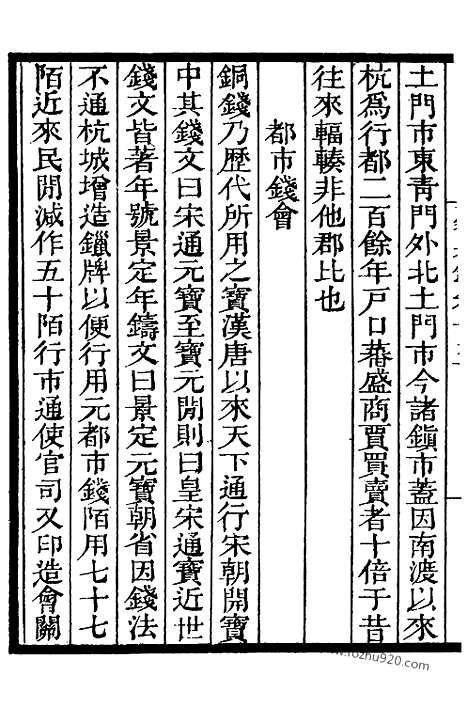 土門市東青門外北土門市今諸鎭市蓋因南渡以來
杭爲行都二百餘年戸口蕃盛商賈買賣者十倍于昔
往來輻輳非他郡比也
都市錢會
銅錢乃歷代所用之寶漢唐以來天下通行宋朝開寶
中其錢文曰宋通元寶至寶元閒則曰皇宋通寶近世
錢文皆著年號景定年鑄文曰景定元寶朝省因錢法
不通杭城增造鑞牌以便行用元都市錢陌用七十七
陌近來民閒減作五十陌行市通使官司又印造會關
www.fozhu920.com